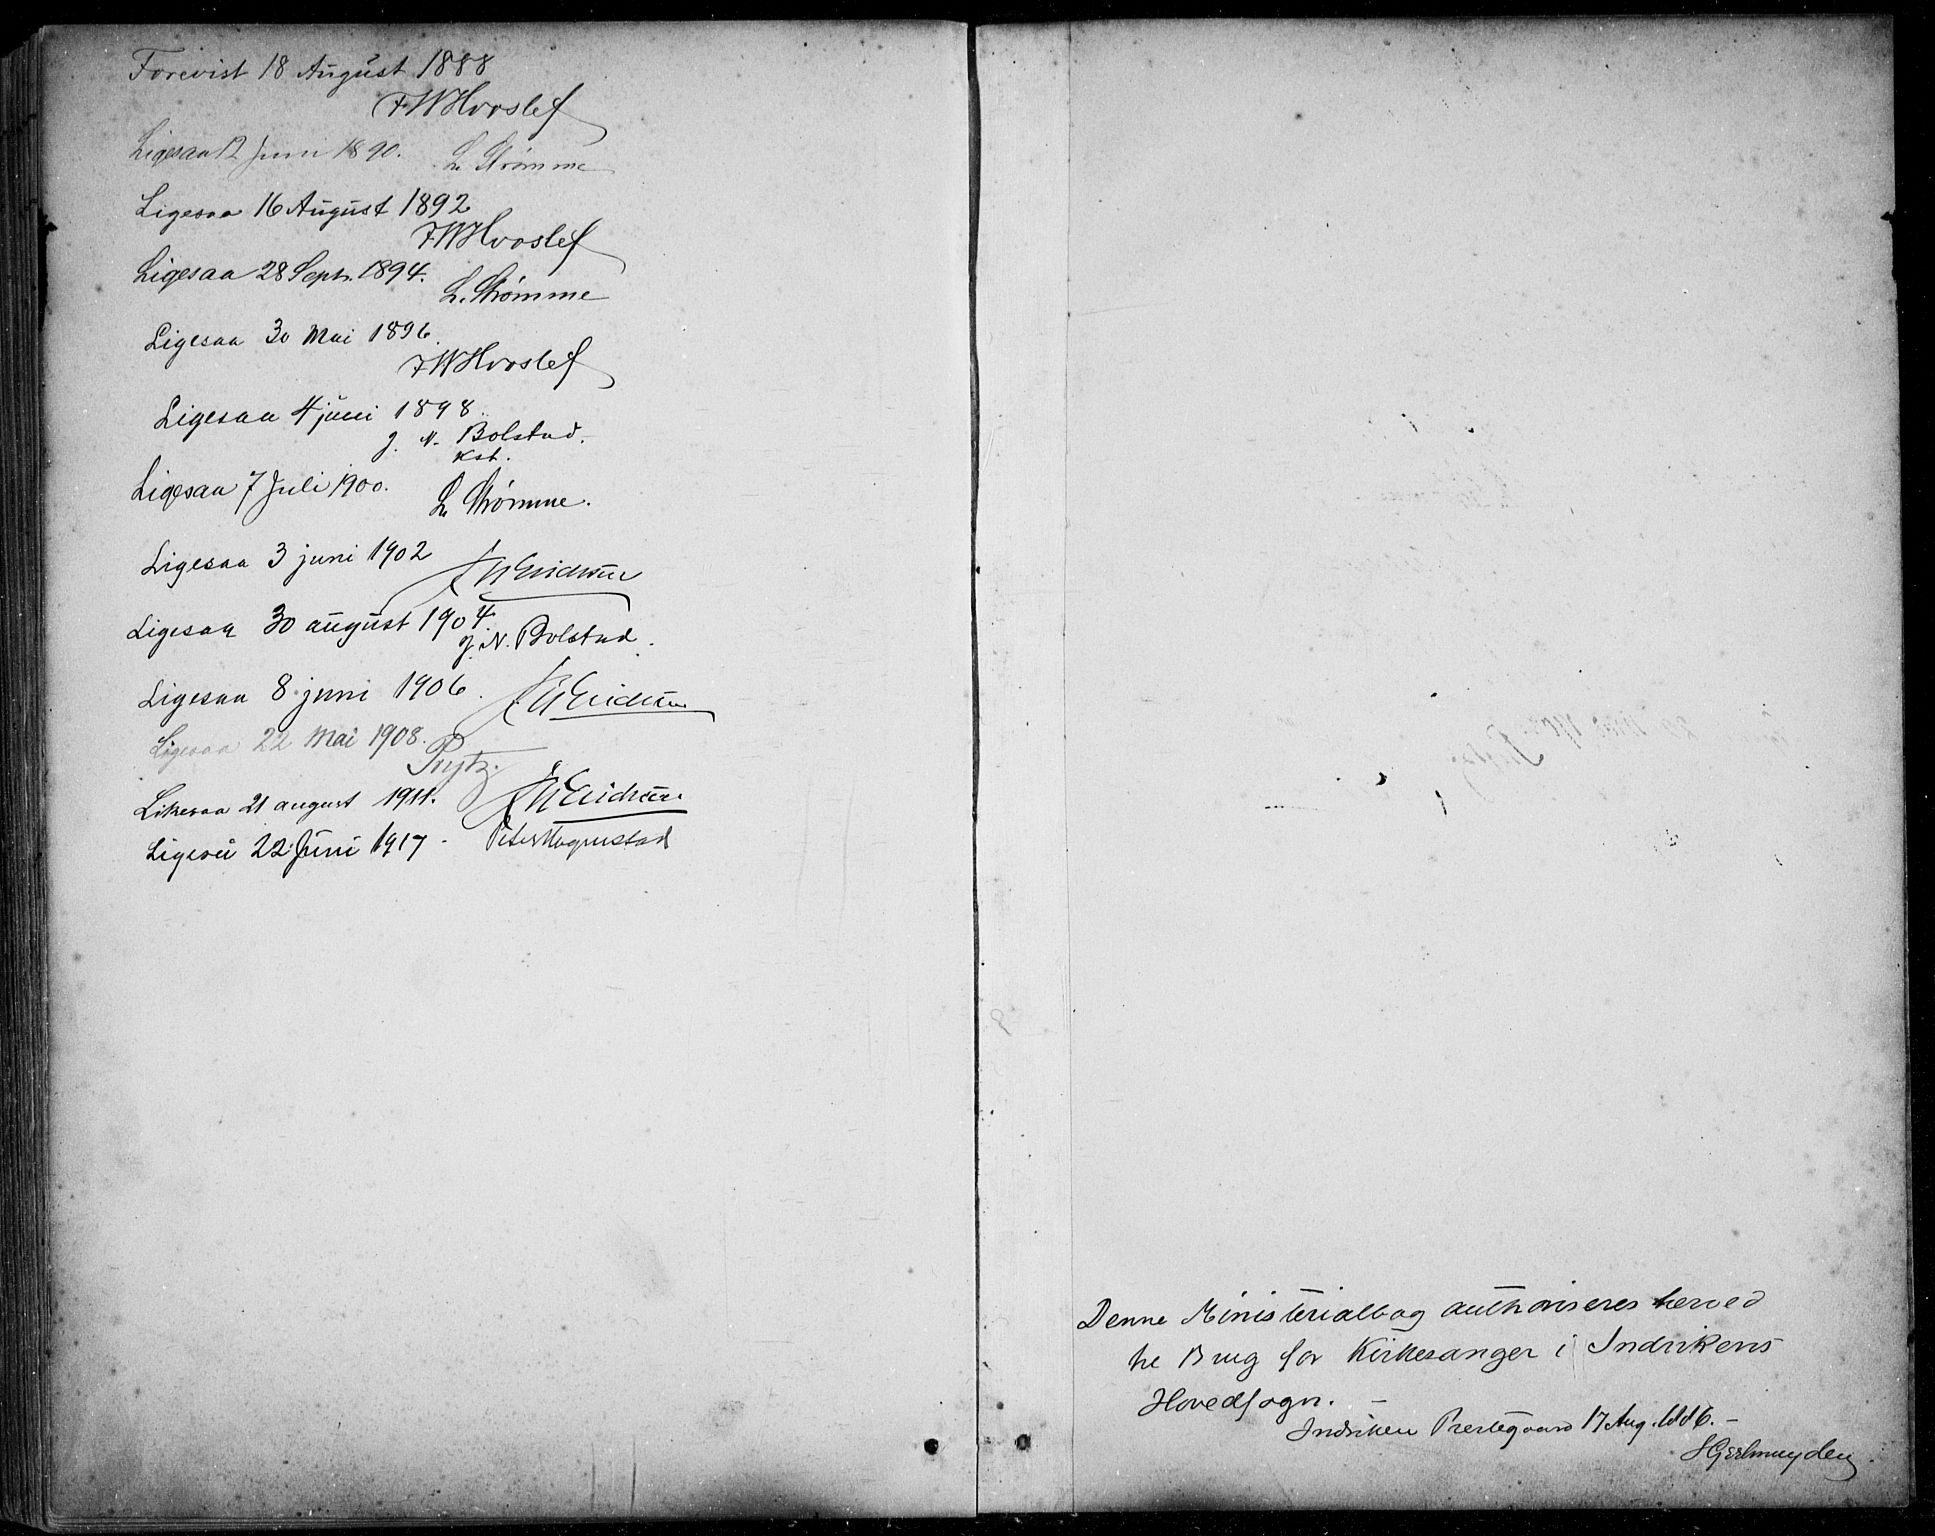 Forevist 18 August 1888
FWHvoslef
Ligesaa 12 Juni 1890. L. Strømme
Ligesaa 16 August 1892
FWHvoslef
Ligesaa 28 Sept. 1894.
L. Strømme
Ligesaa 30 Mai 1896.
FWHvoslef
Ligesaa 4 juni 1898.
J. N. Bolstad.
Kst.
Ligesaa 7 Juli 1900.
L. Strømme.
Ligesaa 3 juni 1902
Ligesaa 30 august 1904.
J. N. Bolstad.
Ligesaa 8 juni 1906.
Ligesaa 22 Mai 1908.
Prytz.
Likesaa 21 august 1911.
22 Juni 1917 -
Denne Ministerialbog authoriseres herved
til Brug for Kirkesanger i Indvikens
Hovedsogn. -
Indviken Prestegaard 17 Aug. 1886. -
Geelmuyden